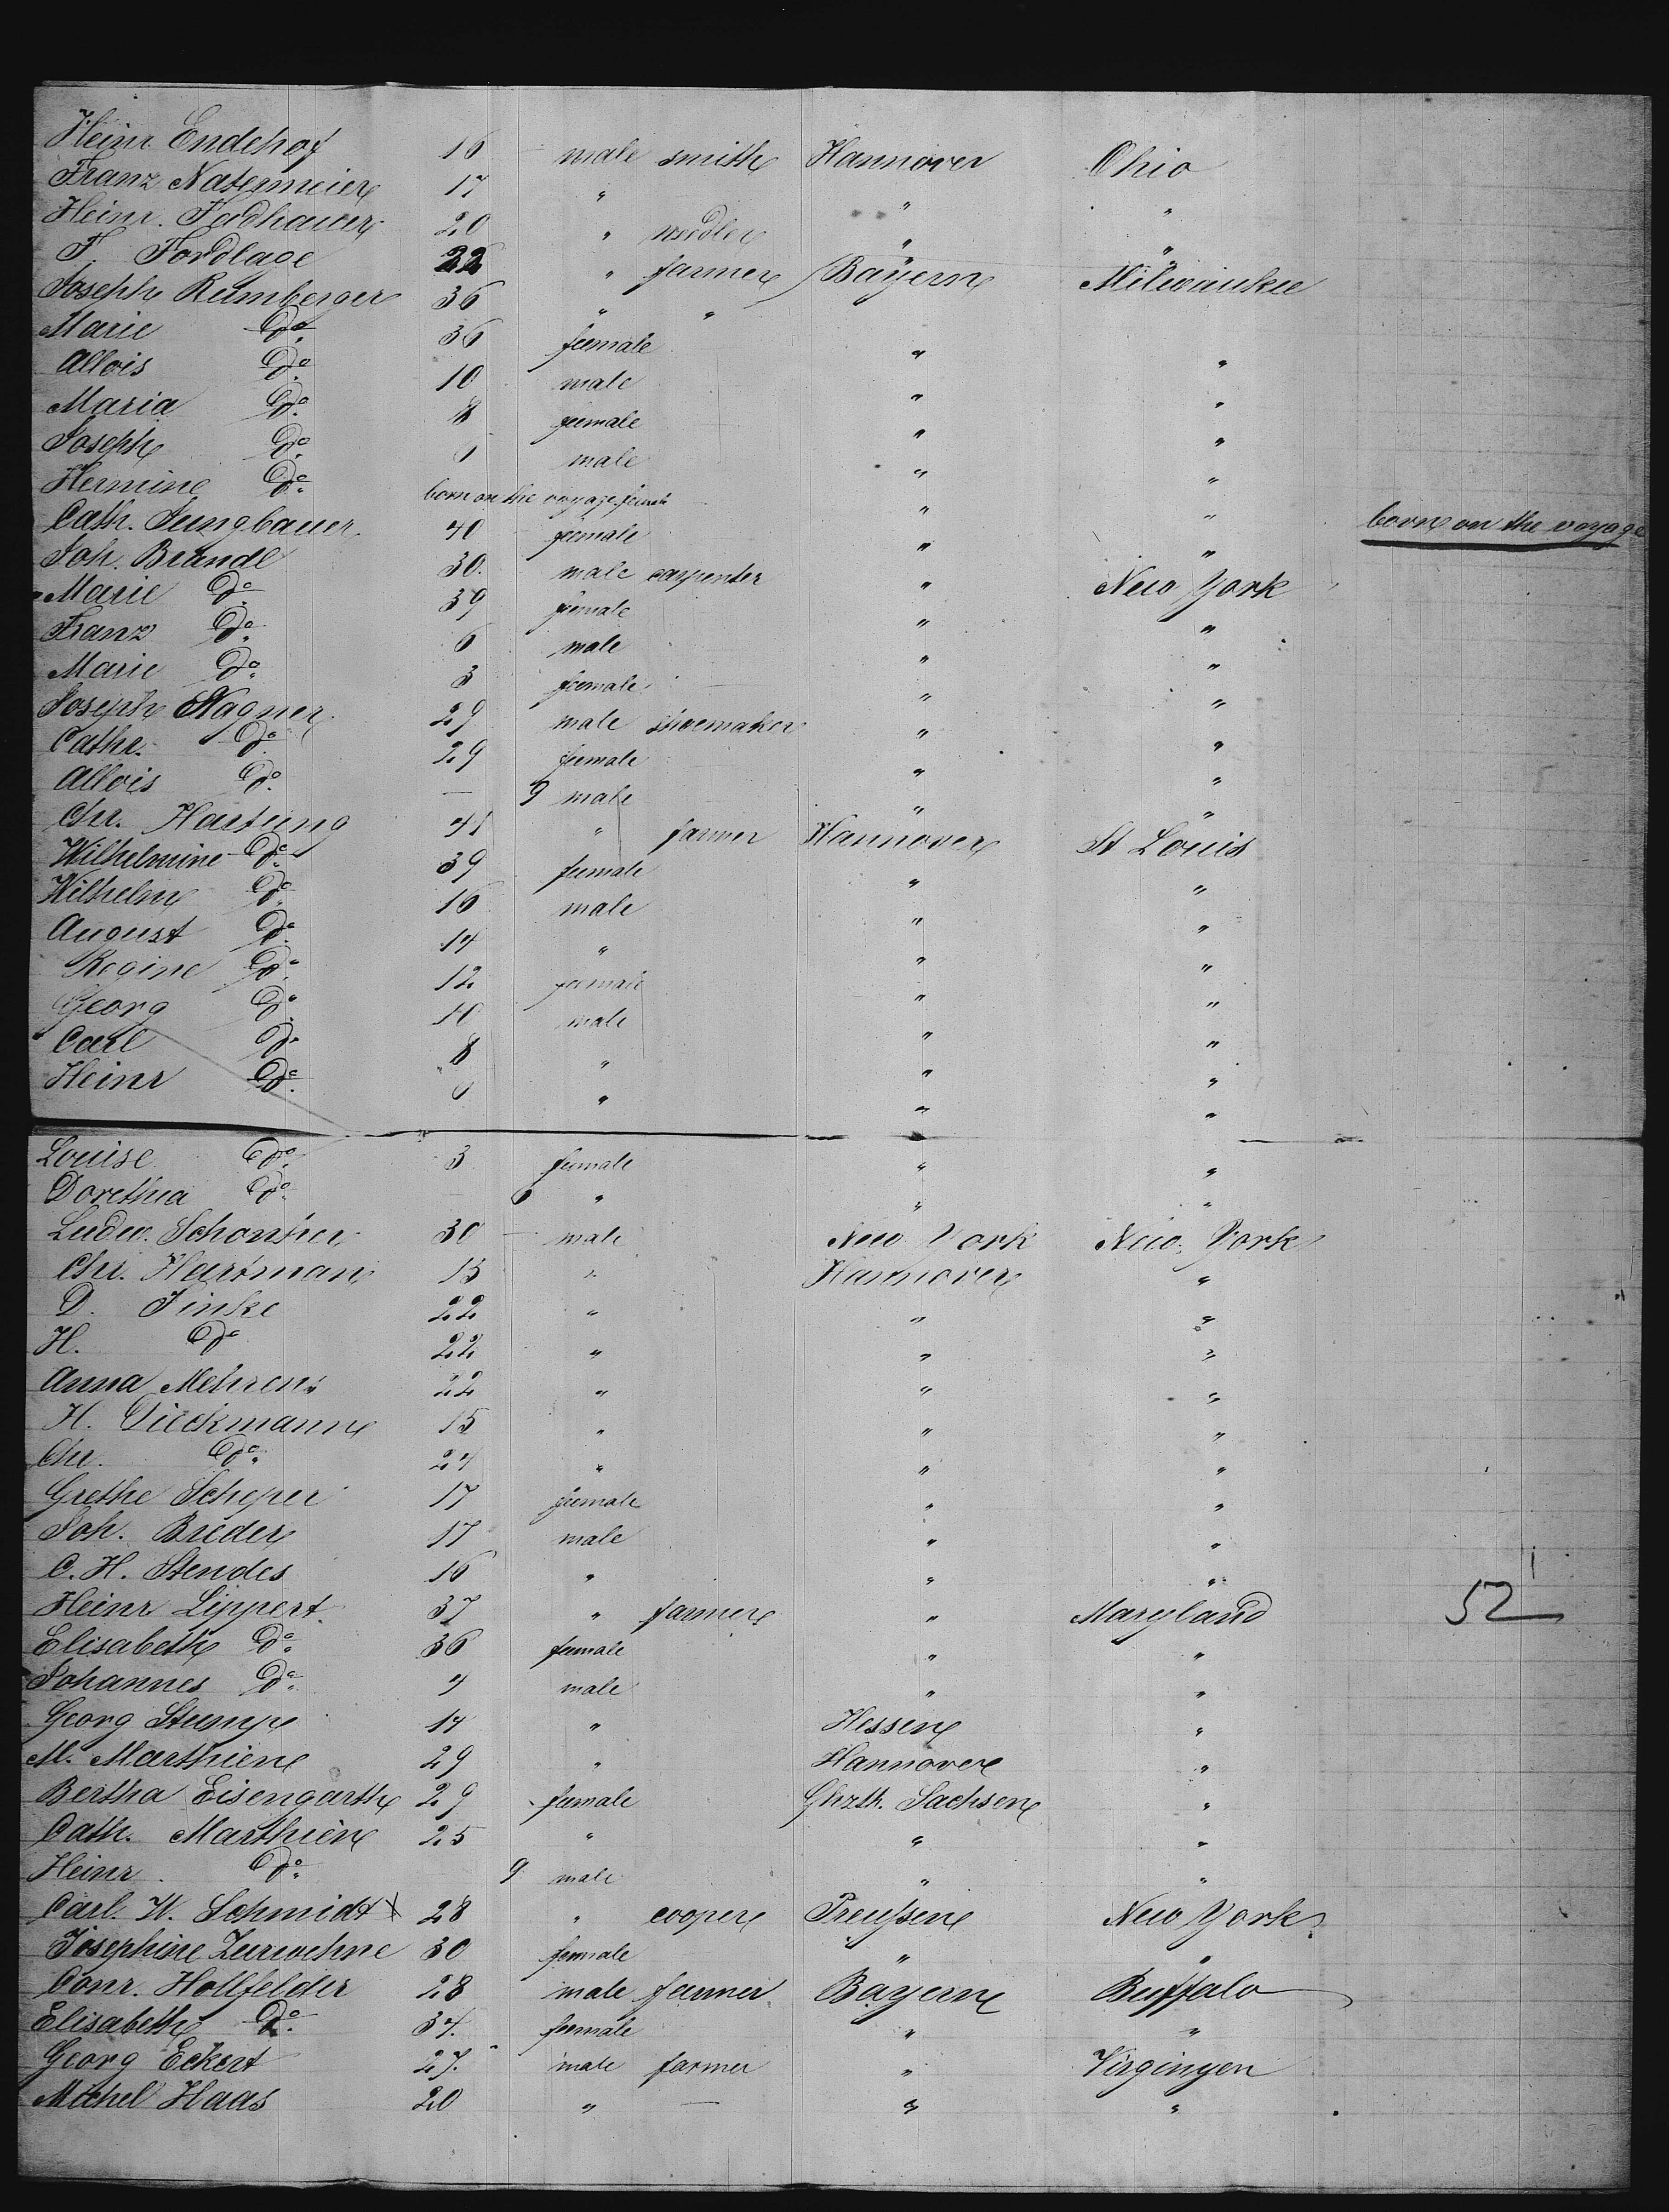 Heinr Endehof 16 male smith Hannover Ohio
Franz Natermeier 17 " " "
Heinr. Fadhauer 20 " needler " "
F. Fordlage 22 " farmer Bayern Milwaukee
Joseph Rumberger 36 " "
Marie Do. 36 female " "
Allois Do. 10 male " "
Maria Do. 8 female " "
Joseph Do. male " "
Hermine Do. born on the voyage female " " born on the voyage
Cath. Jungbauer 40 female " "
Joh. Brandl 30. male carpenter " New York
Marie Do. 39 female " "
Franz Do. 6 male " "
Marie Do. 3 female " "
Joseph Wagner 29 male shoemaker " "
Cathr. Do. 29 female " "
Allois Do. — 9 male " "
Chr. Hartung 41 " farmer Hannover St Louis
Wilhelmine Do. 39 female " "
Wilhelm Do. 16 male " "
August Do. 14 " " "
Regine Do. 12 female " "
Georg Do. 10 male " "
Carl Do. 8 " " "
Heinr Do. 6 " " "
Louise Do. 3 female " "
Dorethea Do. 6 " " "
Ludw. 30 male New York New York
Chr. Hartman 15 " Hannover "
D. Finke 22 " " "
H. Do 22 " " "
Anna Mehrens 22 " " "
H. Dieckmann 15 " " "
Chr. Do. 24 " " "
Grethe Scheper 17 female " "
Joh. Breder 17 male " "
C. H. Stendes 16 " " "
Heinr Lippert 37 " farmer " Maryland 52
Elisabeth Do. 36 female " "
Johannes Do. male " "
Georg Stumpe 14 " Hessen "
M. Marthien 29 " Hannover "
Bertha Eisengarth 29 female Ghzth. Sachsen "
Cath. Marthien 25 " " "
Heinr. Do. 9 male " "
Carl. W. Schmidt x 28 " cooper Preußen New York
Josephine Zurwehne 30 female " "
Conr. Hollfelder 28 male farmer Bayern Buffalo
Elisabeth Do. 34. female " "
Georg Eckert 27. male farmer " Virginyen
Michel Haas 20 " — " "